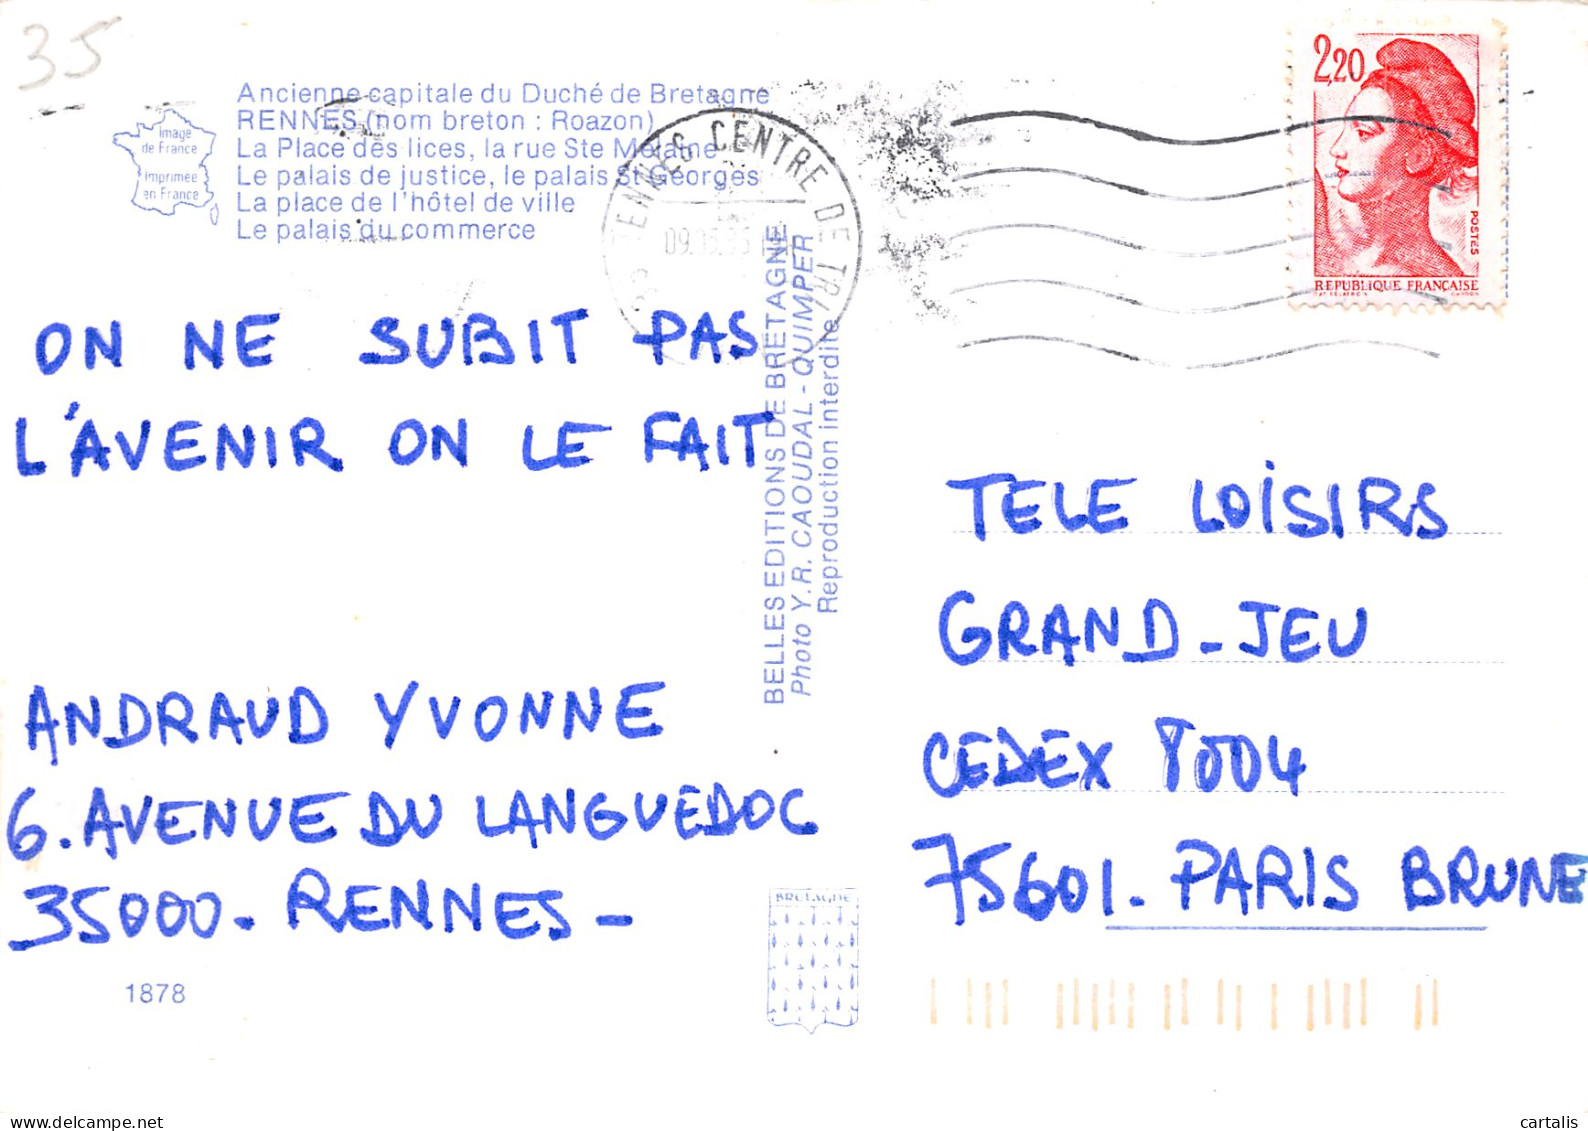 35
Ancienne capitale du Duché de Bretagne
RENNES (nom breton : Roazon)
La Place des lices, la rue Ste Mélaine
Le palais de justice, le palais St Georges
La place de l'hôtel de ville
Le palais du commerce
Image
de France
Imprimée
en France
CENTRE DE TRI
2,20
POSTES
REPUBLIQUE FRANÇAISE
ON NE SUBIT PAS
L'AVENIR ON LE FAIT
ANDRAUD YVONNE
6. AVENUE DU LANGUEDOC
35000. RENNES -
1878
BELLES EDITIONS DE BRETAGNE
Photo Y.R. CAOUDAL - QUIMPER
Reproduction interdite
BRETAGNE
TELE LOISIRS
GRAND-JEU
CEDEX 8004
75601. PARIS BRUNE
delcampe.net
cartalis